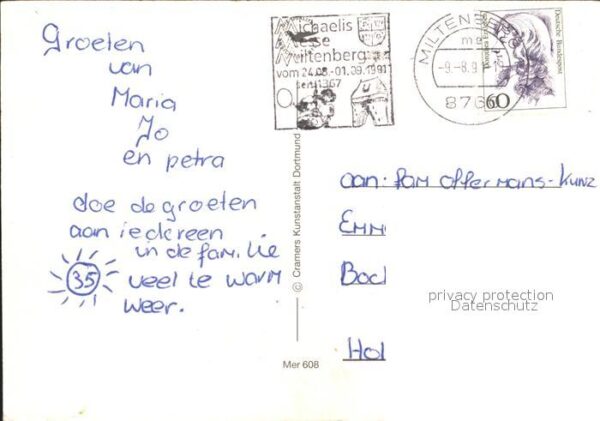 Groeten
van
Maria
Jo
en petra
doe de groeten
aan iedereen
in de familie
35
veel te warm
weer.
Michaelis
Messe
Miltenberg
vom 24.08.-01.09.1991
seit 1367
MILTENBERG
-9.-8.91-1
876
Deutsche Bundespost
60
© Cramers Kunstanstalt Dortmund
Mer 608
aan: fam offermans-Kunz
Emm
Bocl
Hol
privacy protection
Datenschutz